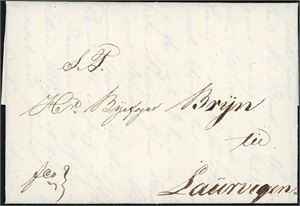 S. T.
Hr. Bygger Brÿn
til
Laürvigen.
fco